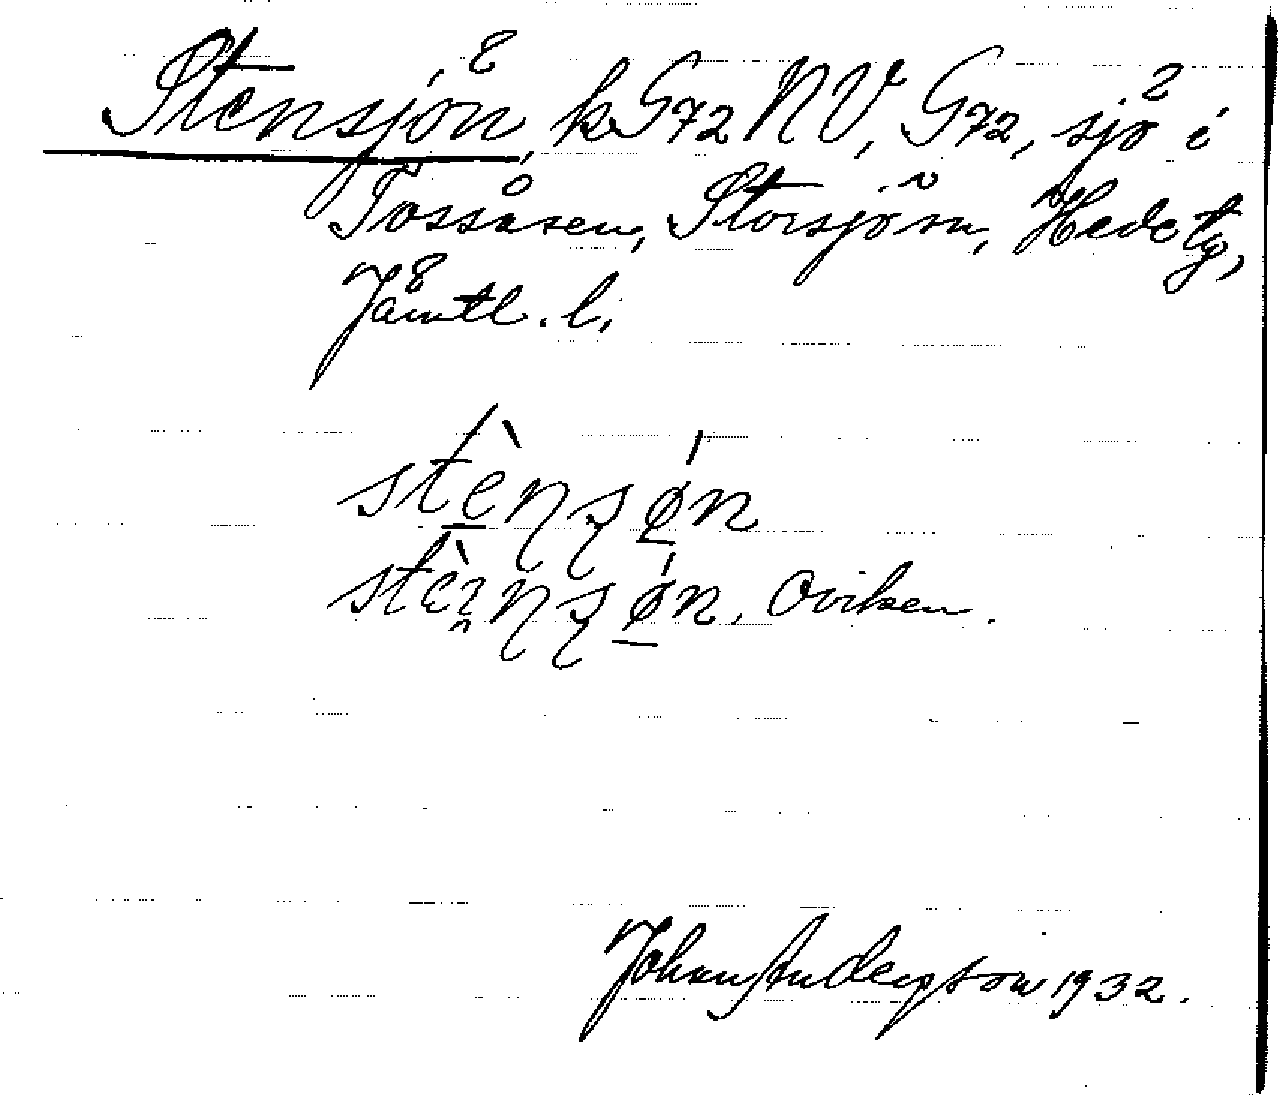 Stensjön, k G72 NV, G72, sjö i
Tossåsen, Storsjön, Hede tg,
Jämtl. l.
stèn̨s̨ǿn
stèn̨s̨ǿn, Oviken.
Johan Anderson 1932.